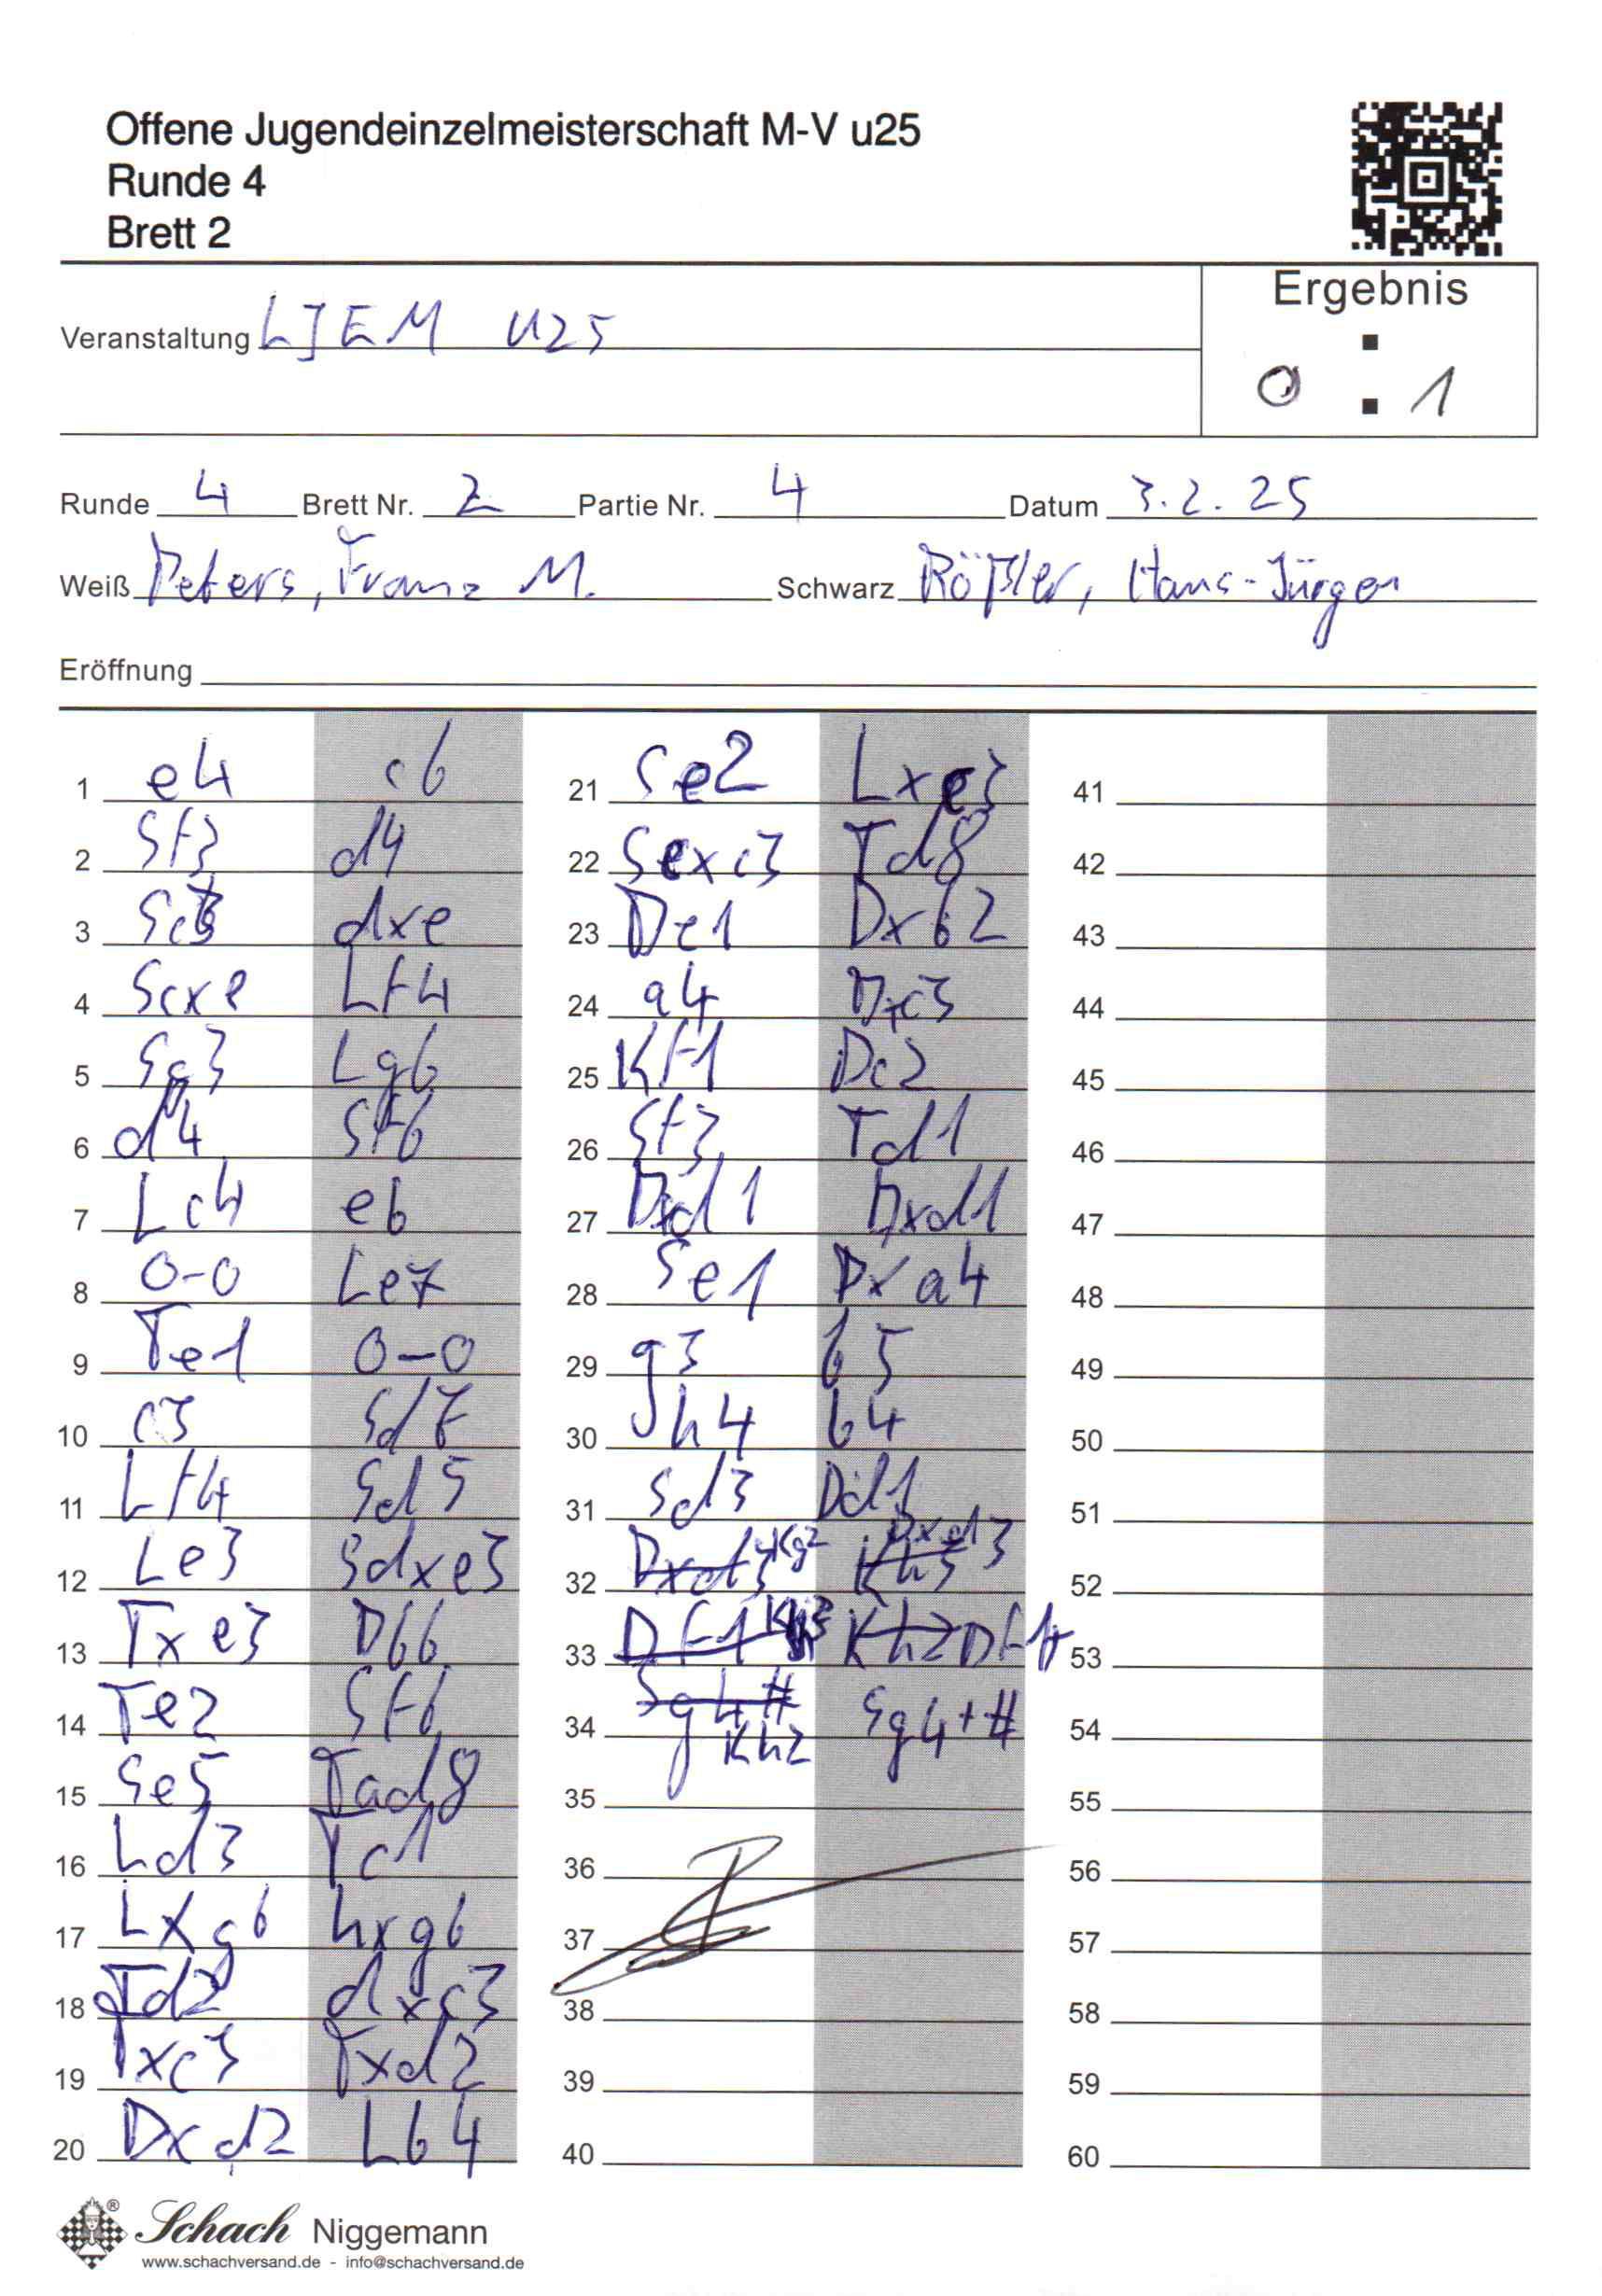 Offene Jugendeinzelmeisterschaft M-V u25
Runde 4
Brett 2
Ergebnis
0 : 1
Veranstaltung LJEM U25
Runde 4 Brett Nr. 2 Partie Nr. 4 Datum 3.2.25
Weiß Peters, Franz M. Schwarz Rößler, Hans-Jürgen
Eröffnung
1 e4 c6
2 Sf3 d4
3 Sc3 dxe
4 Scxe Lf4
5 Sg3 Lg6
6 d4 Sf6
7 Lc4 e6
8 0-0 Le7
9 Te1 0-0
10 c3 Sd7
11 Lf4 Sd5
12 Le3 Sdxe3
13 Txe3 Db6
14 Te2 Sf6
15 Se5 Tad8
16 Ld3 Tc1
17 Lxg6 hxg6
18 Td2 dxc3
19 Txc3 Txd2
20 Dxd2 Lb4
21 Se2 Lxe3
22 Sexc3 Td8
23 De1 Dxb2
24 a4 Dxc3
25 Kf1 Dc2
26 Sf3 Td1
27 Dxd1 Dxd1
28 Se1 Dxa4
29 g3 b5
30 h4 b4
31 Sd3 Dd1
32 Dxd3 Kg2 Kh3 Dxd3
33 Df1 Kh3 Kh2 Df1+
34 Sg4# Kh2 Sg4+#
35
36
37
38
39
40
41
42
43
44
45
46
47
48
49
50
51
52
53
54
55
56
57
58
59
60
Schach Niggemann
www.schachversand.de - info@schachversand.de